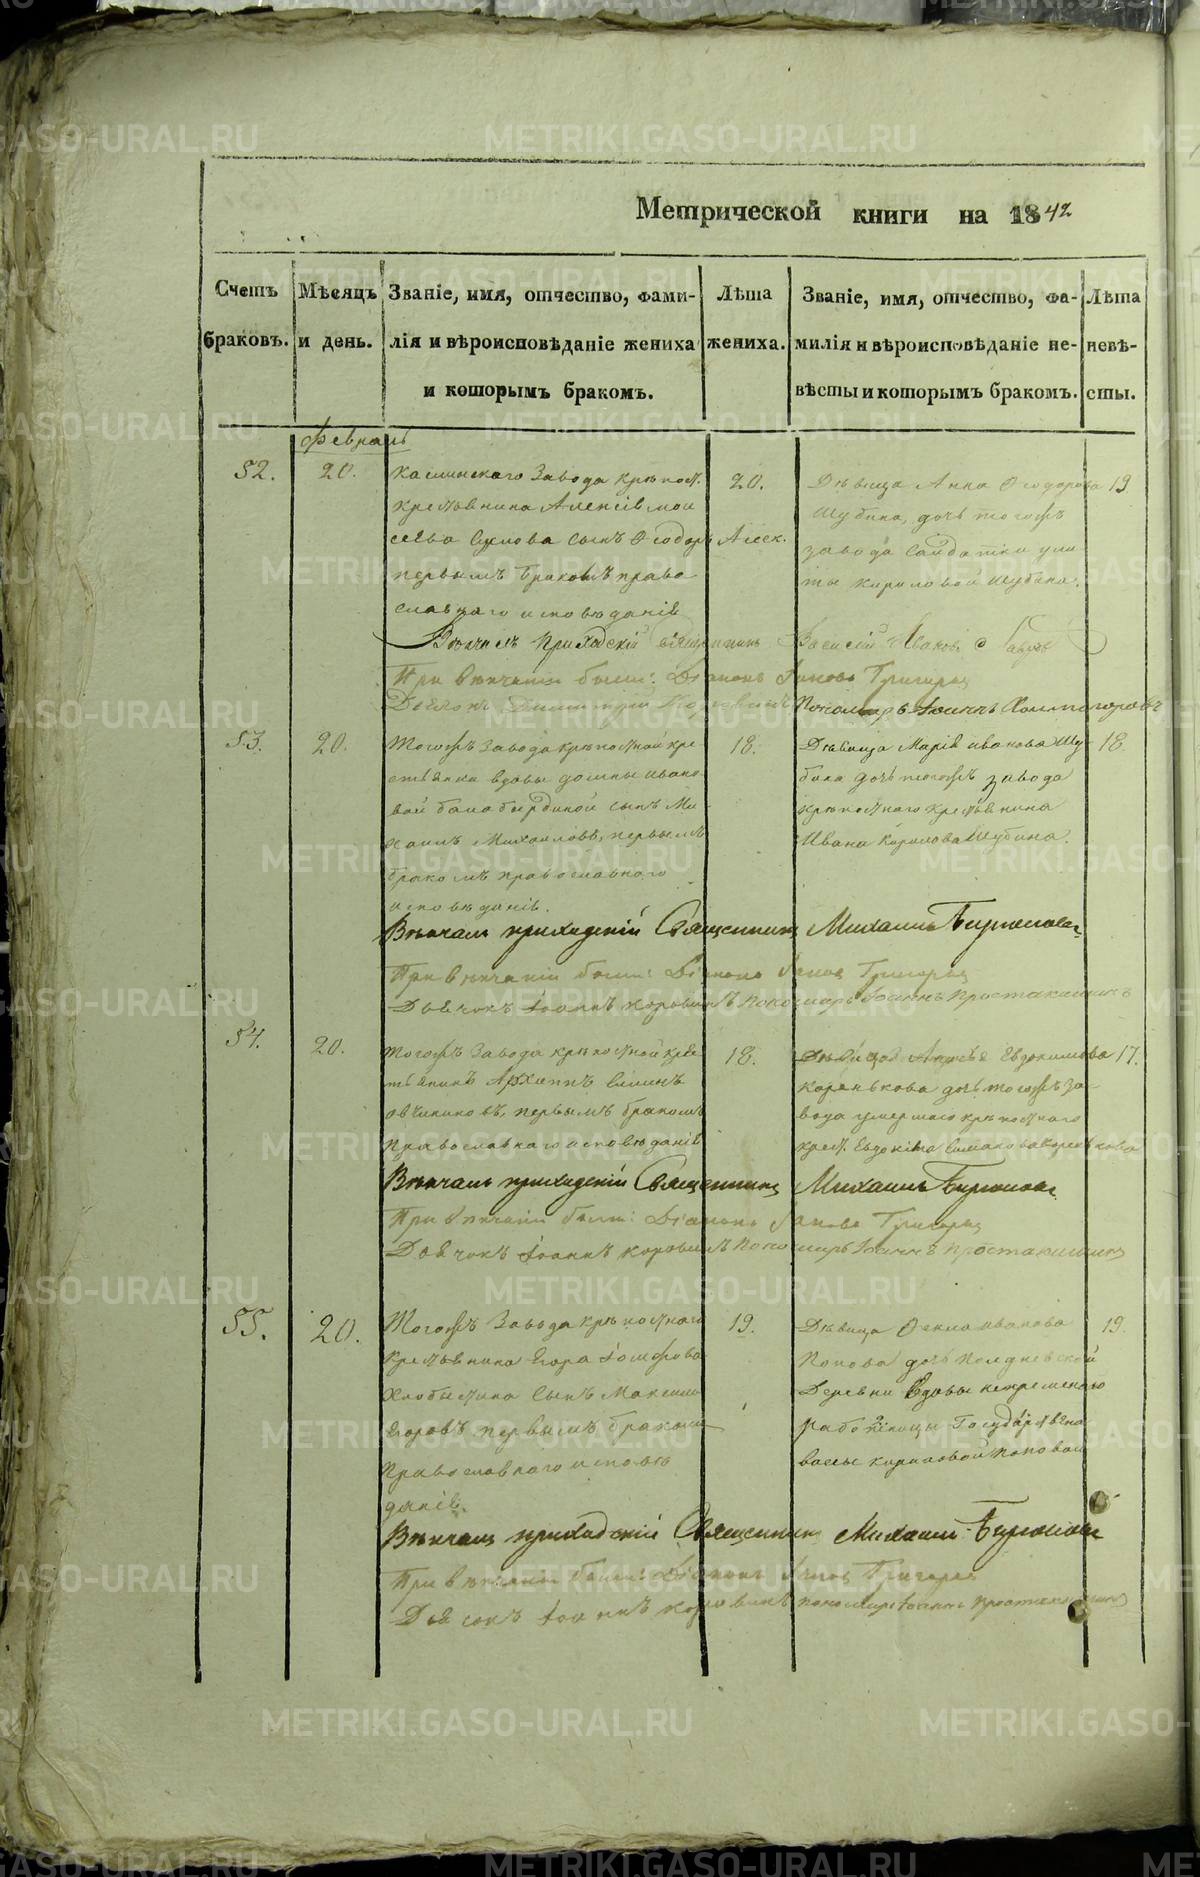 Метрической книги на 1842
Счетъ браковъ.
Мѣсяцъ и день.
Званіе, имя, отчество, фами-
лія и вѣроисповѣданіе жениха
и которымъ бракомъ.
Лѣта жениха.
Званіе, имя, отчество, фа-
милія и вѣроисповѣданіе не-
вѣсты и которымъ бракомъ.
Лѣта невѣ-
сты.
Февраль
52.
20.
Каслинскаго Завода крѣпост.
крестьянина Алексія Мои
сеева сынъ Ѳеодоръ Алек.
первымъ бракомъ право
славнаго исповѣданія
20.
Дѣвица Анна Ѳеодорова
Шубина, дочь тогожъ
завода Салдатки Ули
ты Кириловой Шубиной.
19.
Вѣнчалъ Приходскій Священникъ Василій Иванов
При вѣнчаніи были: Діаконъ Григорьев
Дьячокъ Димитрій Коровинъ Пономарь Іоаннъ Холмогоровъ
53.
20.
Тогожъ Завода крѣпостной кре
стьянки вдовы Домны Ивано
вой Балабардиной сынъ Ми
хаилъ Михаиловъ, первымъ
бракомъ православнаго
исповѣданія.
18.
Дѣвица Марія Иванова Шу-
бина дочь тогожъ завода
крѣпостнаго крестьянина
Ивана Кирилова Шубина.
18
Вѣнчалъ приходскій Священникъ Михаилъ
При вѣнчаніи были: Діаконъ Григорьев
Дьячокъ Іоаннъ Коровинъ Пономарь Іоаннъ Простакишинъ
54.
20.
Тогожъ Завода крѣпостной крес
тьянинъ Архиппъ
Овчинниковъ, первымъ бракомъ
Православнаго исповѣданія
18.
Дѣвица Евдокимова
Коренькова дочь тогожъ за-
вода умершаго крѣпостнаго
крест. Евдокима Коренькова
17.
Вѣнчалъ приходскій Священникъ Михаилъ
При вѣнчаніи были: Діаконъ Григорьев
Дьячокъ Іоаннъ Коровинъ Пономарь Іоаннъ Простакишинъ
55.
20.
Тогожъ Завода крѣпостнаго
крестьянина Егора
Хлобыстина сынъ Максимъ
Егоровъ первымъ бракомъ
Православнаго исповѣ
данія.
19.
Дѣвица Ѳекла Иванова
Попова дочь Полдневской
Деревни вдовы непремѣннаго
работницы Государствена
Кириловой Поповой
19.
Вѣнчалъ приходскій Священникъ Михаилъ
При вѣнчаніи были: Діаконъ Григорьев
Дьячокъ Іоаннъ Коровинъ Пономарь Іоаннъ Простакишинъ
METRIKI.GASO-URAL.RU